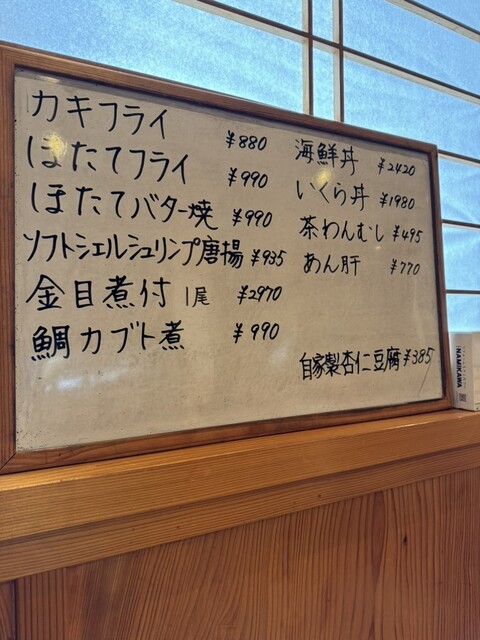 カキフライ ¥880
ほたてフライ ¥990
ほたてバター焼 ¥990
ソフトシェルシュリンプ唐揚 ¥935
金目煮付 1尾 ¥2970
鯛カブト煮 ¥990
海鮮丼 ¥2420
いくら丼 ¥1980
茶わんむし ¥495
あん肝 ¥770
自家製杏仁豆腐 ¥385
NAMIKAWA